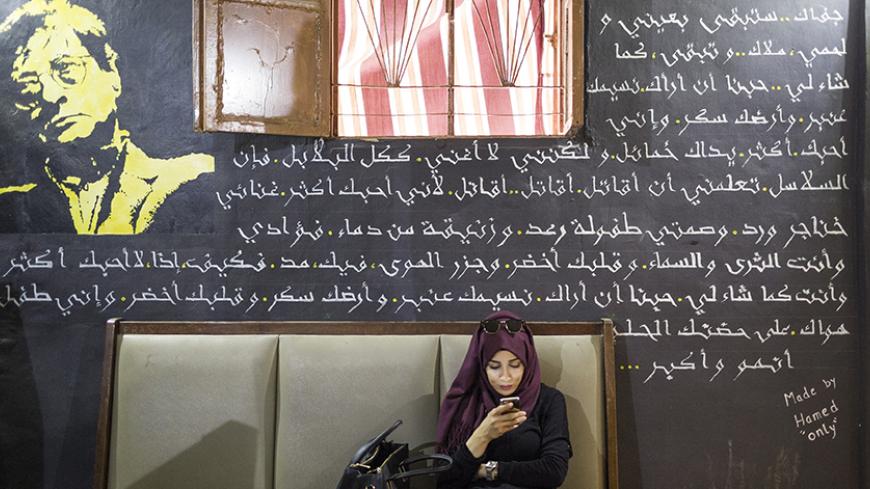 جفاك..ستبقي بعيني و
لحمي، ملاك..و تبقى، كما
شاء لي..حبنا أن أراك.نسيمك
عنبر.وأرضك سكر.وإني
أحبك أكثر.يداك خمائل.و لكنني لا أغني.ككل البلابل.فإن
السلاسل.تعلمني أن أقاتل.أقاتل..اقاتل.لأني أحبك أكثر.غنائي
خناجر ورد.وصمتي طفولة رعد.وزنبقة من دماء.فؤادي
وأنت الثرى والسماء.وقلبك أخضر.وجزر الهوى،فيك،مد.فكيف،إذا،لا أحبك أكثر
وأنت كما شاء لي.حبنا أن أراك.نسيمك عنبر.وأرضك سكر.وقلبك أخضر.وإني طفل
هواك.على حضنك
أنمو وأكبر...
Made by
Hamed
"only"